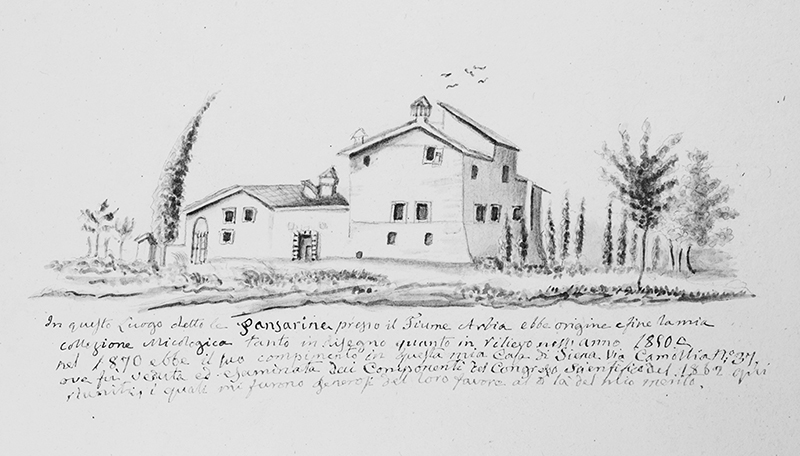 In questo Luogo detto le Pansarine presso il Fiume Arbia ebbe origine e fine la mia
collezione Micologica tanto in disegno quanto in rilievo nell'anno 1850 e
nel 1870 ebbe il suo compimento in questa mia Casa di Siena Via Camollia N.° 37.
ove fu veduta ed esaminata dai Componenti del Congresso Scientifico del 1862 qui
riuniti, i quali mi furono generosi del loro favore al di là del mio merito.